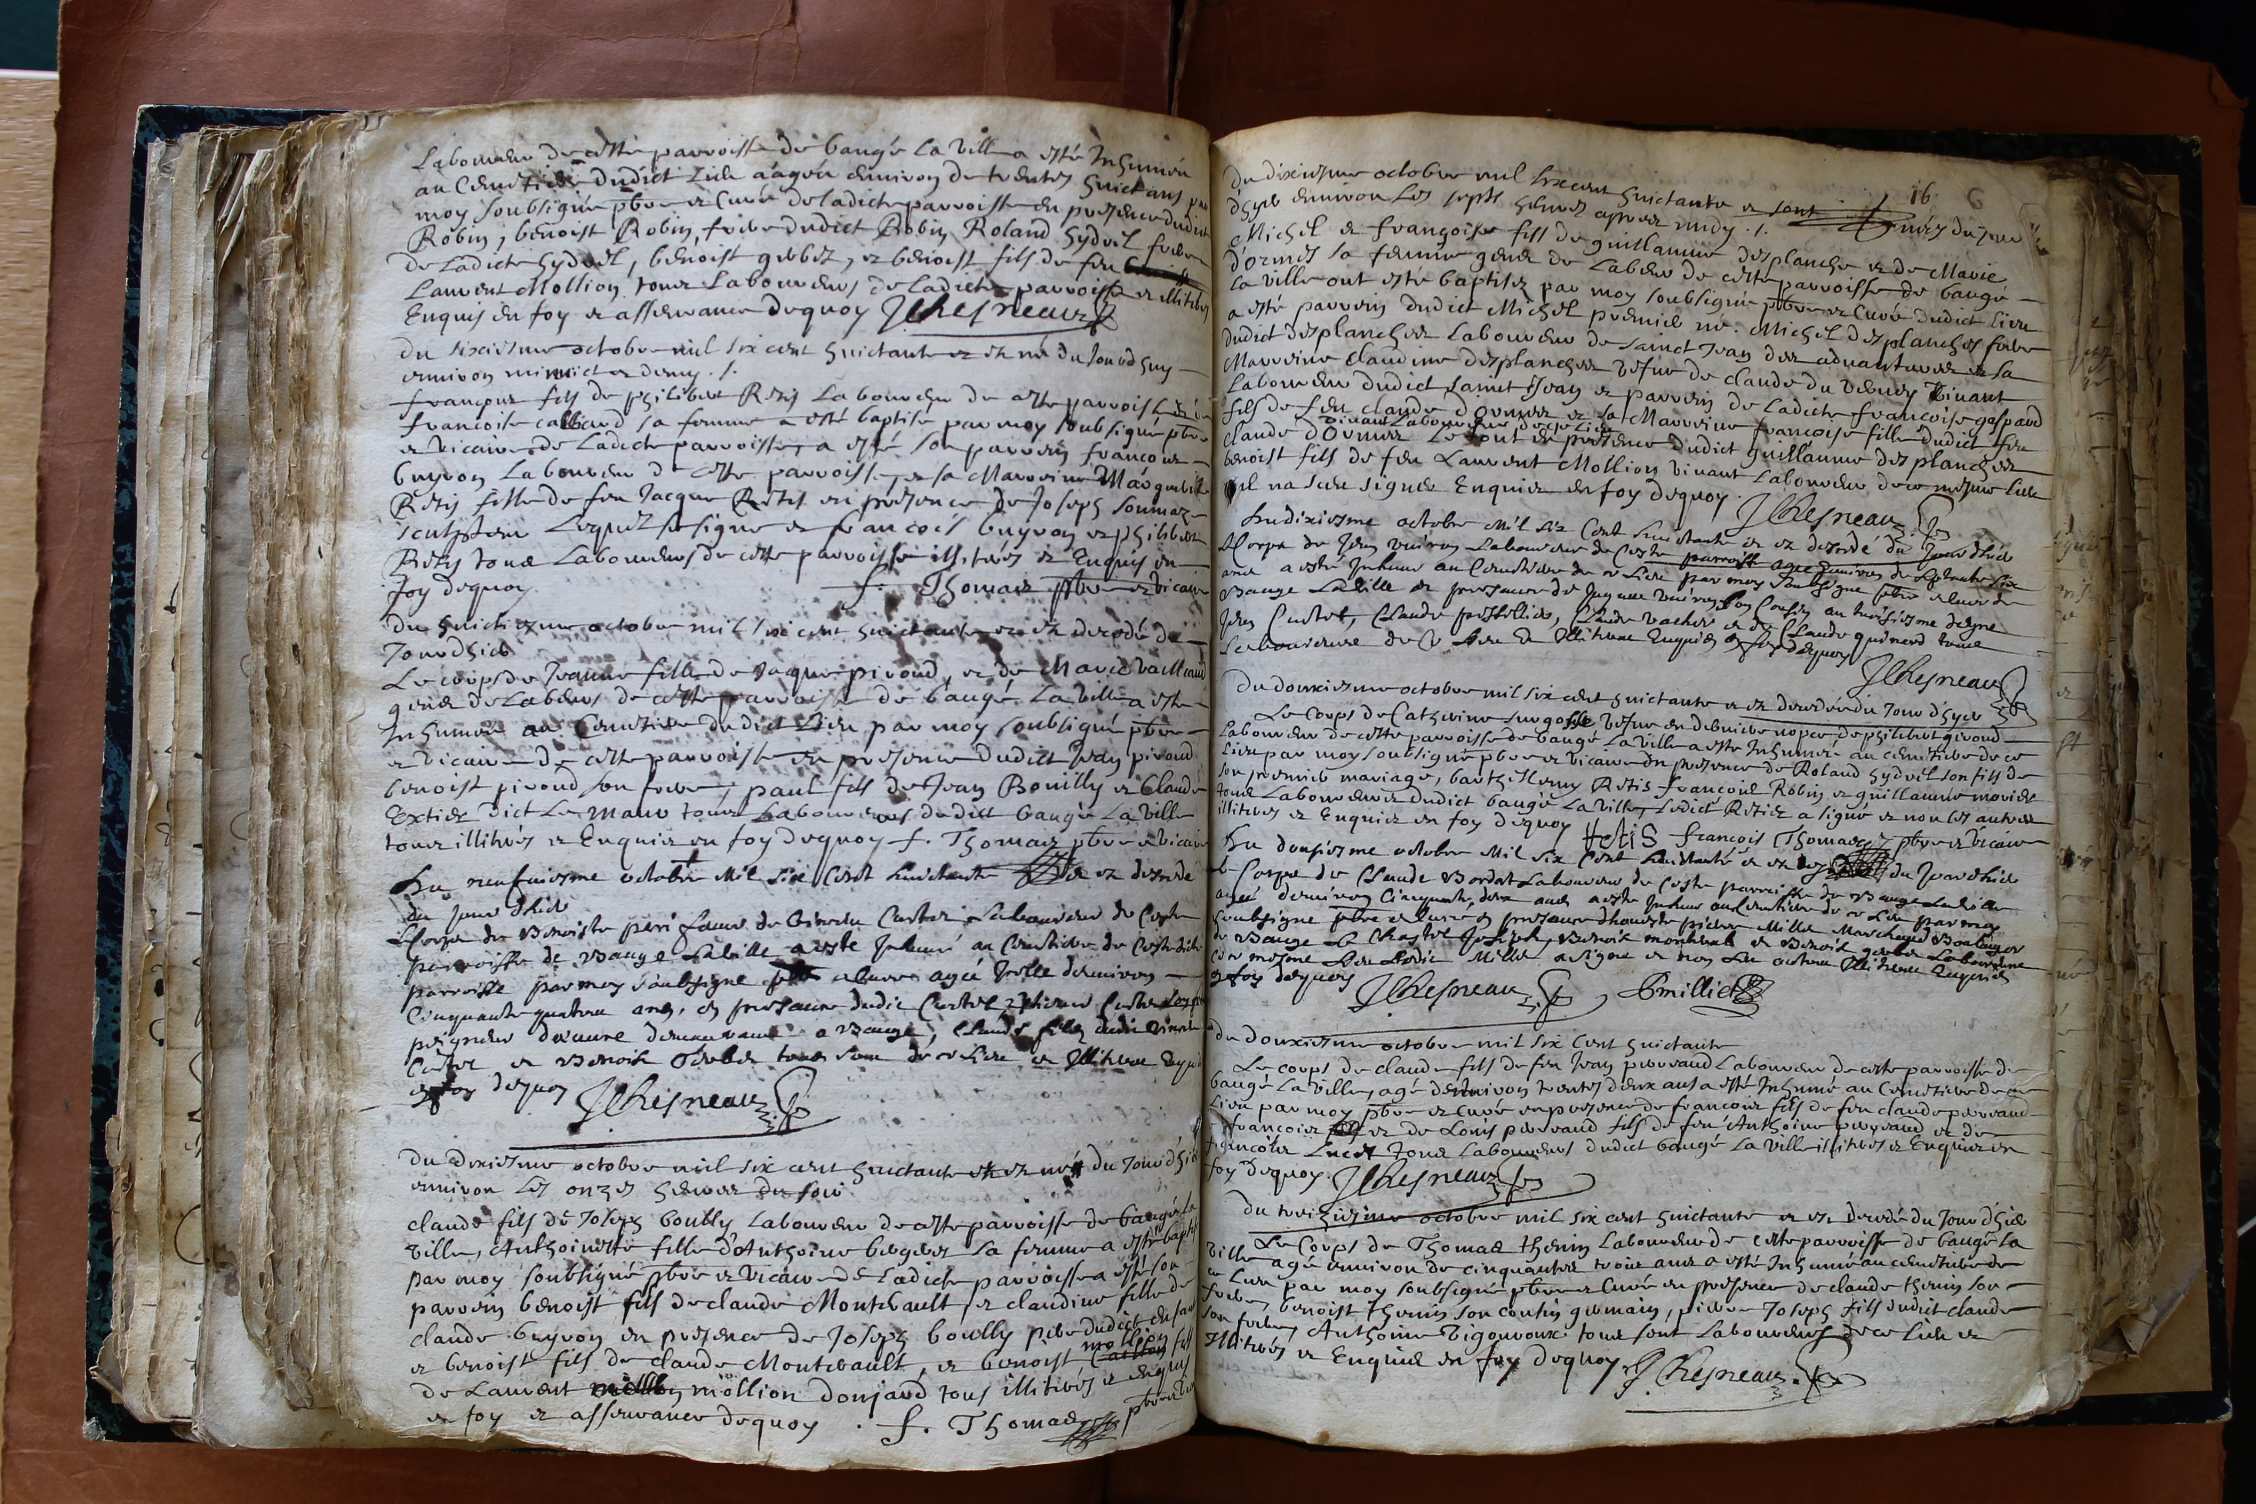 Laboureur de cette parroisse de baugé la ville a esté Inhumée
au Cemetiere dudict Lieu aagée environ de trentes huict ans par
moy soubsigné pbre et Curé de ladicte parroisse en presence dudict
Robin, benoist Robin, frere dudict Robin Roland hydvel frere
de Ladicte hydvel, benoist gerbez, et benoist fils de feu
Laurent Mollion tous Laboureurs de Ladicte parroisse et illitres
Enquis en foy et asseurance dequoy JChesneau
Du sixiesme octobre mil six cent huictante et est né du Jourdhuy
environ minuict et demy ./.
françois fils de philibert Retis Laboureur de cette parroisse et de
francoise sa femme a esté baptisé par moy soubsigné pbre
et vicaire de Ladicte parroisse, a esté son parrein francois
buyron Laboureur de cette parroisse, et sa Marreine Marguerite
Retis fille de feu Jacque Retis en presence de Joseph
sculpteur Lequel a signé et francois buyron et philibert
Retis tous Laboureurs de cette parroisse illitrés et Enquis en
foy dequoy. f. Thomas pbre et vicaire
Du huictiezme octobre mil six cent huictante et est decedé de
Jourdhier
Le corps de Jeanne fille de Jacque pivond, et de Marie vailland
gens de Labeurs de cette parroisse de baugé La ville a esté
Inhumée au Cemetiere dudict Lieu par moy soubsigné pbre
et vicaire de cette parroisse en presence dudict Jean pivond
benoist pivond son frere, paul fils de Jean Bouilly et Claude
Extier dict Le Maur tous Laboureurs dudict baugé La ville
tous illitrés et Enquis en foy dequoy f. Thomas pbre et vicaire
Du neufuiesme octobre Mil Six Cent huictante et est decedé
du Jour dhier
Le Corps de Benoiste peri femme de Curtet Laboureur de Ceste
parroisse de Baugé La ville a esté Inhumé au Cemetiere de Ceste dicte
parroisse par moy soubsigné pbre et Curé agée Icelle denviron
Cinquante quatre ans, en presence dudic Curtet,
peigneur demeurant a Baugé, Claude fils dudi
et Benoist Gerbet tous sont de ce Lieu et Illitres Enquis
en foy dequoy JChesneau
Du dixiesme octobre mil six cent huictante et est né du Jourdhier
environ Les onzes heures du soir
claude fils de Joseph boully Laboureur de cette parroisse de baugé la
ville, Anthoinette fille d'Anthoine bergier sa femme a esté baptisé
par moy soubsigné pbre et vicaire de Ladicte parroisse a esté son
parrein benoist fils de claude Monterault, et claudine fille de
claude buyron en presence de Joseph boully pere dudict enfant
et benoist fils de claude Monterault, et benoist mollion fils
de Laurent mollion donjard tous illitres et enquis
en foy et asseurance dequoy. f. Thomas pbre et vic
16 6
Du dixiesme octobre mil six cent huictante et sont nés du jour
dhyer environ Les septs heures apres midy ./.
Michel et françoise fils de guillaume desplanche et de Marie
d'ormes sa femme gens de Labeur de cette parroisse de baugé
La ville ont esté baptises par moy soubsigné pbre et Curé dudict Lieu
a esté parrein dudict Michel premier né. Michel desplanches frere
dudict desplanches Laboureur de sainct Jean des aduantures et sa
Marreine claudine desplanches vefue de claude du vivant
Laboureur dudict sainct Jean et parrein de Ladicte francoise gaspard
fils de feu claude d'ormes et sa Marreine francoise fille dudict feu
vivant Laboureur de ce Lieu
claude d'Ormes Le tout en presence dudict guillaume desplanches
benoist fils de feu Laurent Mollion vivant Laboureur de ce mesme Lieu
qui na sceu signer Enquis en foy dequoy. JChesneau
Du dixiesme octobre Mil Six Cent huictante et est decedé du Jourdhier
Le Corps de Jean Laboureur de Ceste parroisse agé denviron de septante six
ans a esté Inhumé au Cemetiere de ce Lieu par moy soubsigné pbre et Curé de
Baugé La ville en presence de son Cousin au troisiesme degré
Jean Curtet, Claude Claude vacher et de Claude tous
Laboureurs de ce Lieu et Illitres Enquis en foy dequoy
JChesneau
Du douxiesme octobre mil six cent huictante et est decedée du Jour dhyer
Le Corps de Catherine vefue en derniere nopce de philibert givoud
Laboureur de cette parroisse de baugé La ville a esté Inhumée au cemetiere de ce
Lieu par moy soubsigné pbre et vicaire en presence de Roland hydvel son fils de
son premier mariage, barthelemy Retis francois Robin et guillaume morier
tous Laboureurs dudict baugé La ville, Ledict Retis a signé et non Les autres
illitres et Enquis en foy dequoy Retis françois Thomas pbre et vicaire
Du dousiesme octobre Mil Six Cent huictante et est du Jourdhier
Le Corps de Claude Bordat Laboureur de Ceste parroisse de Baugé La ville
agé denviron Cinquante deux ans a esté Inhumé au Cemetiere de ce Lieu par moy
soubsigné pbre et Curé en presence dhoneste pierre Millet Marchand Boulanger
de Baugé Le Chastel Joseph, Benoist monterault et Benoist gerbet Laboureurs
de ce mesme Lieu Ledic Millet a signé et non Les autres Illitres Enquis
en foy dequoy JChesneau PMilliet
Du douxiesme octobre mil six Cent huictante
Le corps de claude fils de feu Jean perraud Laboureur de cette parroisse de
baugé La ville, agé denviron trentes deux ans a esté Inhumé au Cemetiere de ce
Lieu par moy pbre et Curé en presence de francois fils de feu claude perraud
francois et de Louis perraud fils de feu Anthoine perraud et de
francois tous Laboureurs dudict baugé La ville illitres et Enquis en
foy dequoy. JChesneau
Du treiziesme octobre mil six cent huictante et est decedé du Jour dhier
Le Corps de Thomas thenin Laboureur de cette parroisse de baugé La
ville agé environ de cinquantes trois ans a esté Inhumé au cemetiere de
ce Lieu par moy soubsigné pbre et Curé en presence de claude thenin son
frere, benoist thenin son cousin germain, pierre Joseph fils dudict claude
son frere, Anthoine Vigouroux tous sont Laboureurs de ce Lieu et
Illitrés et Enquis en foy dequoy JChesneau